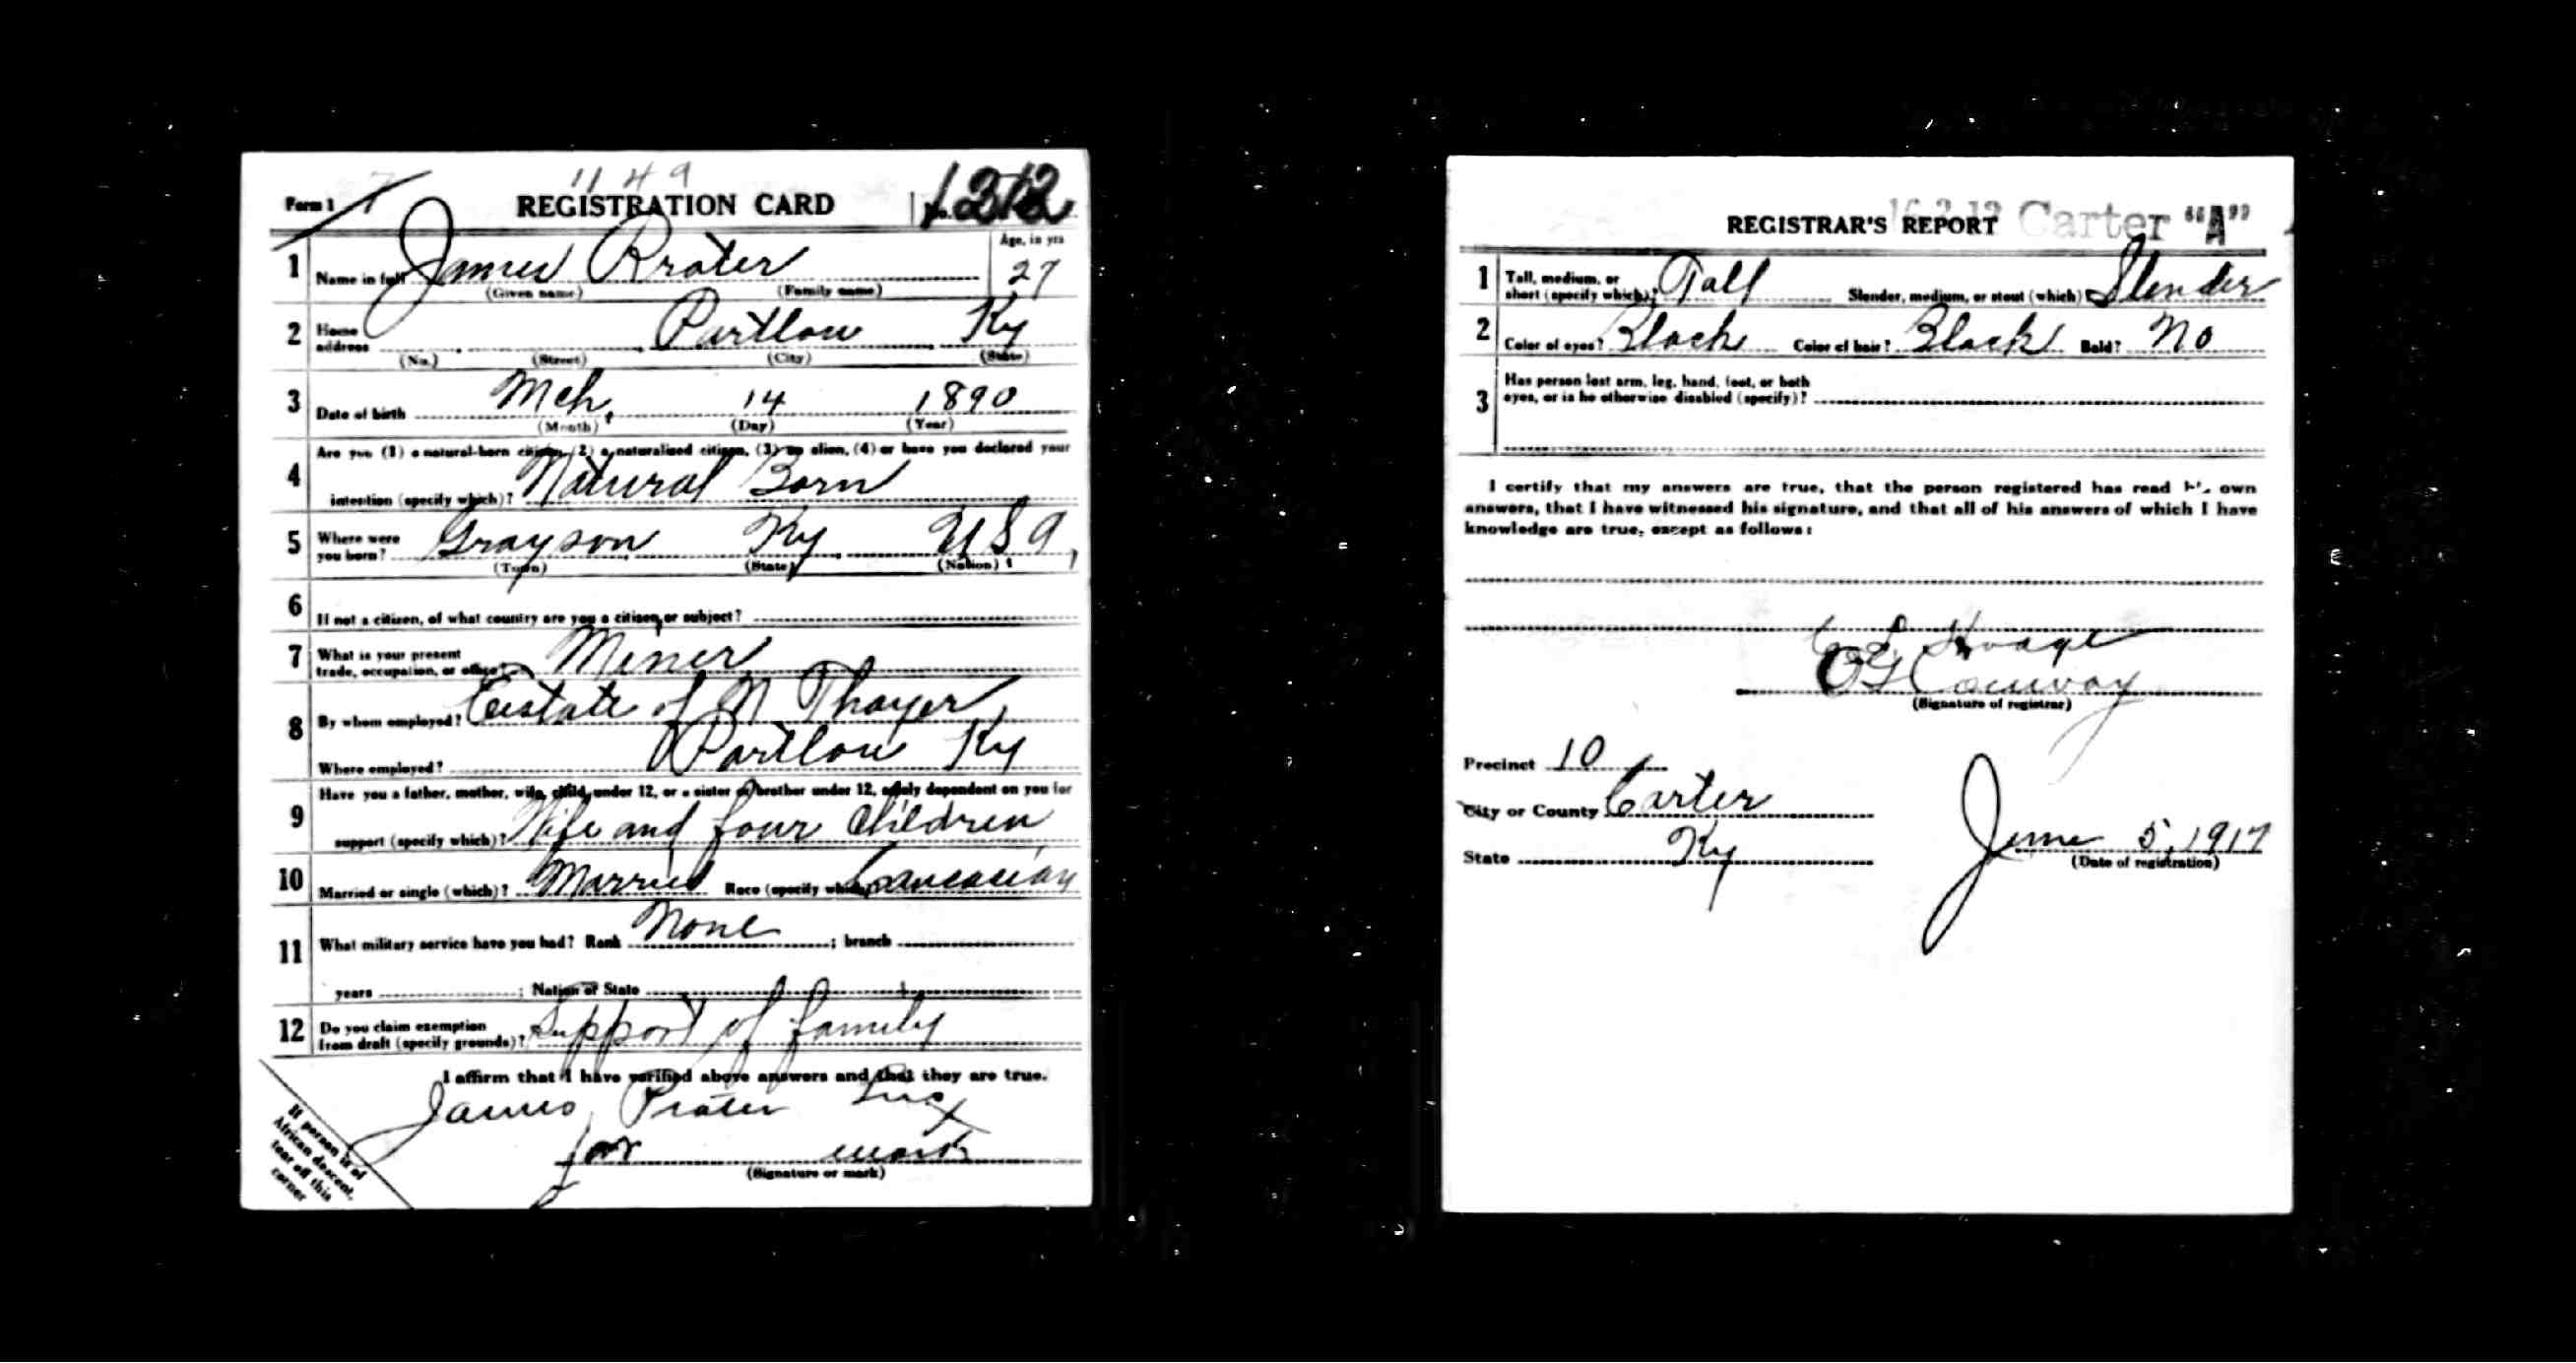 Form 1 7 1149
REGISTRATION CARD No. 1212
1 Name in full James Prater Age, in yrs 27
(Given name) (Family name)
2 Home address Partlow Ky
(No.) (Street) (City) (State)
3 Date of birth Mch, 14 1890
(Month) (Day) (Year)
4 Are you (1) a natural-born citizen, (2) a naturalized citizen, (3) an alien, (4) or have you declared your
intention (specify which)? Natural Born
5 Where were you born? Grayson Ky. USA,
(Town) (State) (Nation)
6 If not a citizen, of what country are you a citizen or subject?
7 What is your present trade, occupation, or office? Miner
8 By whom employed? Estate of N Thayer
Where employed? Partlow Ky
9 Have you a father, mother, wife, child under 12, or a sister or brother under 12, solely dependent on you for
support (specify which)? Wife and four children
10 Married or single (which)? Married Race (specify which)? Caucasian
11 What military service have you had? Rank None ; branch
years ; Nation or State
12 Do you claim exemption from draft (specify grounds)? Support of family
I affirm that I have verified above answers and that they are true.
James Prater his x
for mark
(Signature or mark)
If person is of
African descent,
tear off this
corner
REGISTRAR'S REPORT Carter "A"
1 Tall, medium, or short (specify which)? Tall Slender, medium, or stout (which)? Slender
2 Color of eyes? Black Color of hair? Black Bald? No
3 Has person lost arm, leg, hand, foot, or both
eyes, or is he otherwise disabled (specify)?
I certify that my answers are true, that the person registered has read his own
answers, that I have witnessed his signature, and that all of his answers of which I have
knowledge are true, except as follows:
Conway
(Signature of registrar)
Precinct 10
City or County Carter
State Ky
June 5, 1917
(Date of registration)